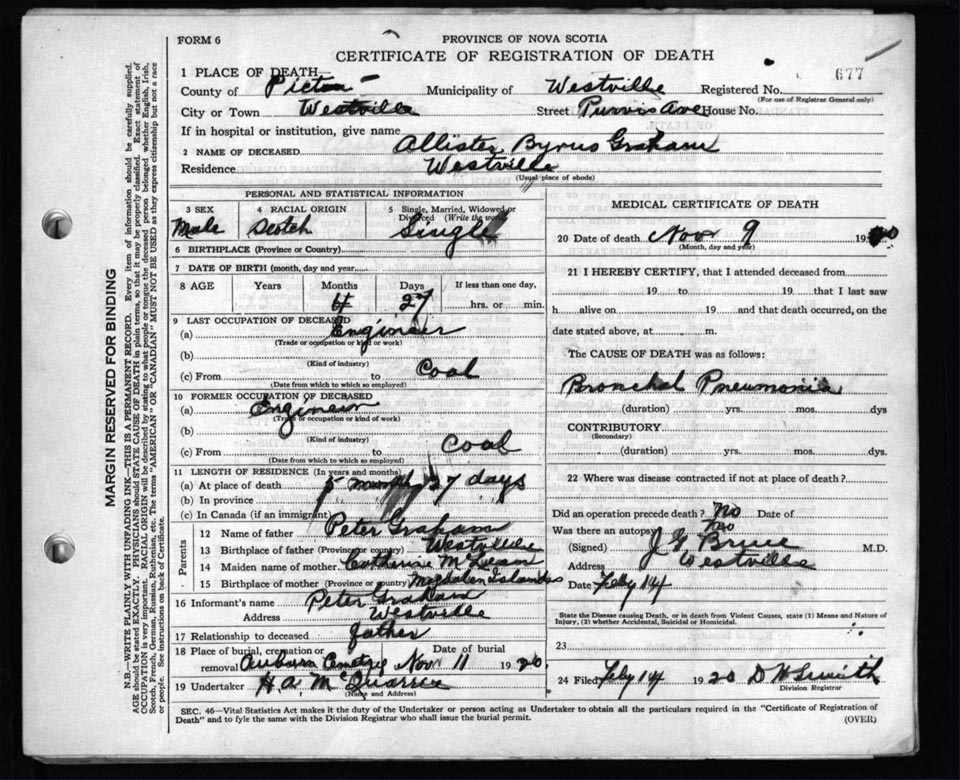 FORM 6
PROVINCE OF NOVA SCOTIA
CERTIFICATE OF REGISTRATION OF DEATH
677
1 PLACE OF DEATH
County of Pictou Municipality of Westville Registered No.
(For use of Registrar General only)
City or Town Westville Street Purvis Ave House No.
If in hospital or institution, give name
2 NAME OF DECEASED Allister Byrus Graham
Residence Westville
(Usual place of abode)
PERSONAL AND STATISTICAL INFORMATION
3 SEX 4 RACIAL ORIGIN 5 Single, Married, Widowed or Divorced (Write the word)
Male Scotch Single
6 BIRTHPLACE (Province or Country)
7 DATE OF BIRTH (month, day and year)
8 AGE Years Months Days If less than one day,
4 27 hrs. or min.
9 LAST OCCUPATION OF DECEASED
(a) Engineer
(Trade or occupation or kind or work)
(b)
(Kind of industry)
(c) From to Coal
(Date from which to which so employed)
10 FORMER OCCUPATION OF DECEASED
(a) Engineer
(Trade or occupation or kind of work)
(b)
(Kind of industry)
(c) From to Coal
(Date from which to which so employed)
11 LENGTH OF RESIDENCE (In years and months)
(a) At place of death 5 months 27 days
(b) In province
(c) In Canada (if an immigrant)
Parents
12 Name of father Peter Graham
13 Birthplace of father (Province or country) Westville
14 Maiden name of mother Catherine McLean
15 Birthplace of mother (Province or country) Magdalen Islands
16 Informant's name Peter Graham
Address Westville
17 Relationship to deceased father
18 Place of burial, cremation or removal Date of burial
Auburn Cemetry Nov 11 1920
19 Undertaker H A McQuarrie
(Name and Address)
MEDICAL CERTIFICATE OF DEATH
20 Date of death Nov 9 19
(Month, day and year)
21 I HEREBY CERTIFY, that I attended deceased from
19 to 19 that I last saw
h alive on 19 and that death occurred, on the
date stated above, at m.
The CAUSE OF DEATH was as follows:
Bronchal Pneumonia
(duration) yrs. mos. dys
CONTRIBUTORY
(Secondary)
(duration) yrs. mos. dys.
22 Where was disease contracted if not at place of death?
Did an operation precede death? No Date of
Was there an autopsy no
(Signed) J G Bruce M.D.
Address Westville
Date Feby 14
State the Disease causing Death, or in death from Violent Causes, state (1) Means and Nature of
Injury, (2) whether Accidental, Suicidal or Homicidal.
23
24 Filed Feby 14 1920 D W Smith
Division Registrar
SEC. 46—Vital Statistics Act makes it the duty of the Undertaker or person acting as Undertaker to obtain all the particulars required in the "Certificate of Registration of
Death" and to fyle the same with the Division Registrar who shall issue the burial permit.
(OVER)
MARGIN RESERVED FOR BINDING
N.B.—WRITE PLAINLY WITH UNFADING INK—THIS IS A PERMANENT RECORD. Every item of information should be carefully supplied.
AGE should be stated EXACTLY. PHYSICIANS should STATE CAUSE OF DEATH in plain terms, so that it may be properly classified. Exact statement of
OCCUPATION is very important. RACIAL ORIGIN will be described by stating to what people or tongue the deceased person belonged whether English, Irish,
Scotch, French, German, Russian, Ruthenian, etc. The terms "AMERICAN" or "CANADIAN" MUST NOT BE USED as they express citizenship but not a race
or people. See instructions on back of Certificate.